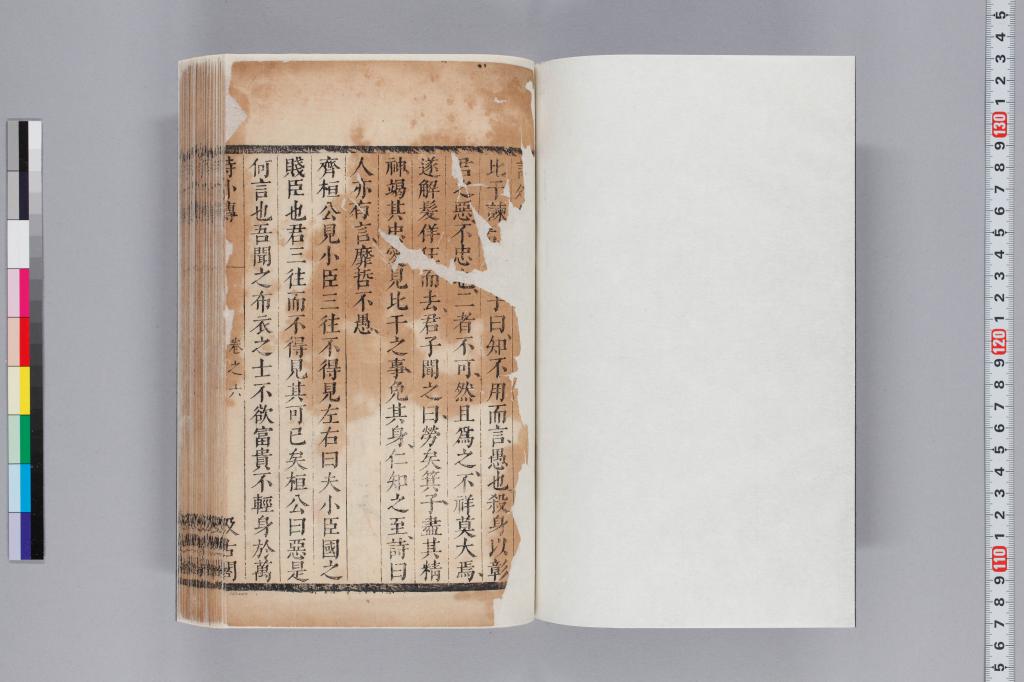 比干諫
子曰知不用而言愚也殺身以彰
君之惡不忠也二者不可然且爲之不祥莫大焉
遂解髮佯狂而去君子聞之曰勞矣箕子盡其精
神竭其忠愛見比干之事免其身仁知之至詩曰
人亦有言靡哲不愚
齊桓公見小臣三往不得見左右曰夫小臣國之
賤臣也君三往而不得見其可已矣桓公曰惡是
何言也吾聞之布衣之士不欲富貴不輕身於萬
詩外傳
卷之六
汲古閣
5 4 3 2 1 130 9 8 7 6 5 4 3 2 1 120 9 8 7 6 5 4 3 2 1 110 9 8 7 6 5